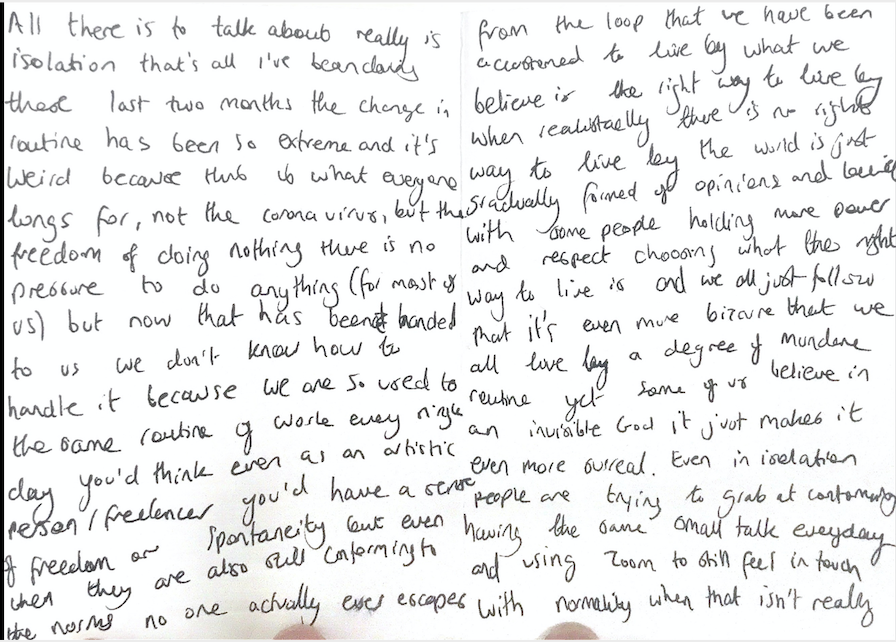 All there is to talk about really is
isolation that's all I've been doing
these last two months the change in
routine has been so extreme and it's
weird because this is what everyone
longs for, not the corona virus, but the
freedom of doing nothing there is no
pressure to do anything (for most of
us) but now that has been handed
to us we don't know how to
handle it because we are so used to
the same routine of work every single
day you'd think even as an artistic
person/freelancer you'd have a sense
of freedom or spontaneity but even
then they are also still conforming to
the norms no one actually ever escapes
from the loop that we have been
accustomed to live by what we
believe is the right way to live by
when realistically there is no right
way to live by the world is just
gradually formed of opinions and
with some people holding more power
and respect choosing what the right
way to live is and we all just follow
that it's even more bizarre that we
all live by a degree of mundane
routine yet some of us believe in
an invisible God it just makes it
even more surreal. Even in isolation
people are trying to grab at
having the same small talk everyday
and using Zoom to still feel in touch
with normality when that isn't really